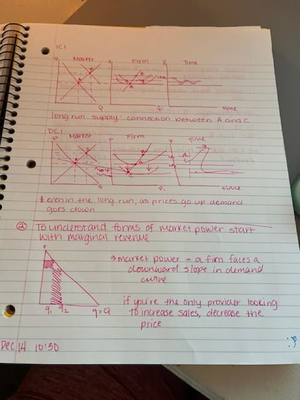 ICI
Market Firm Time
Q Q time
long run supply: connection between A and C
DCI
Market Firm Time
Q Q time
even in the long run, as prices go up demand
goes down
To understand forms of market power start
with marginal revenue
market power - a firm faces a
downward slope in demand
curve
q1 q2 q=Q
if you're the only provider looking
to increase sales, decrease the
price
Dec 14 10:30